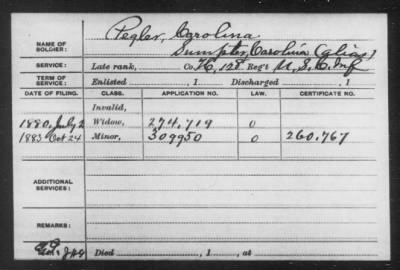 Pegler, Carolina
NAME OF SOLDIER: Sumpter, Carolina (alias)
SERVICE: Late rank, Co. K, 128 Reg't U.S.C. Inf
TERM OF SERVICE: Enlisted , 1 Discharged , 1
DATE OF FILING. CLASS. APPLICATION NO. LAW. CERTIFICATE NO.
Invalid,
1880, July 2 Widow, 274,719 0
1883 Oct 24 Minor, 309950 0 260,767
ADDITIONAL SERVICES:
REMARKS:
Died , 1 , at